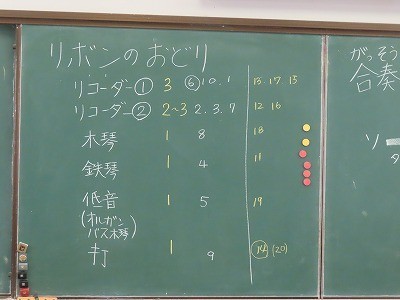 リボンのおどり
リコーダー① 3 ⑥10.1 13 17 15
リコーダー② 2~3 2.3.7 12 16
木琴 1 8 18
鉄琴 1 4 11
低音 1 5 19
(オルガン
バス木琴)
打 1 9 ⑭ (20)
がっそう
合奏
ソー